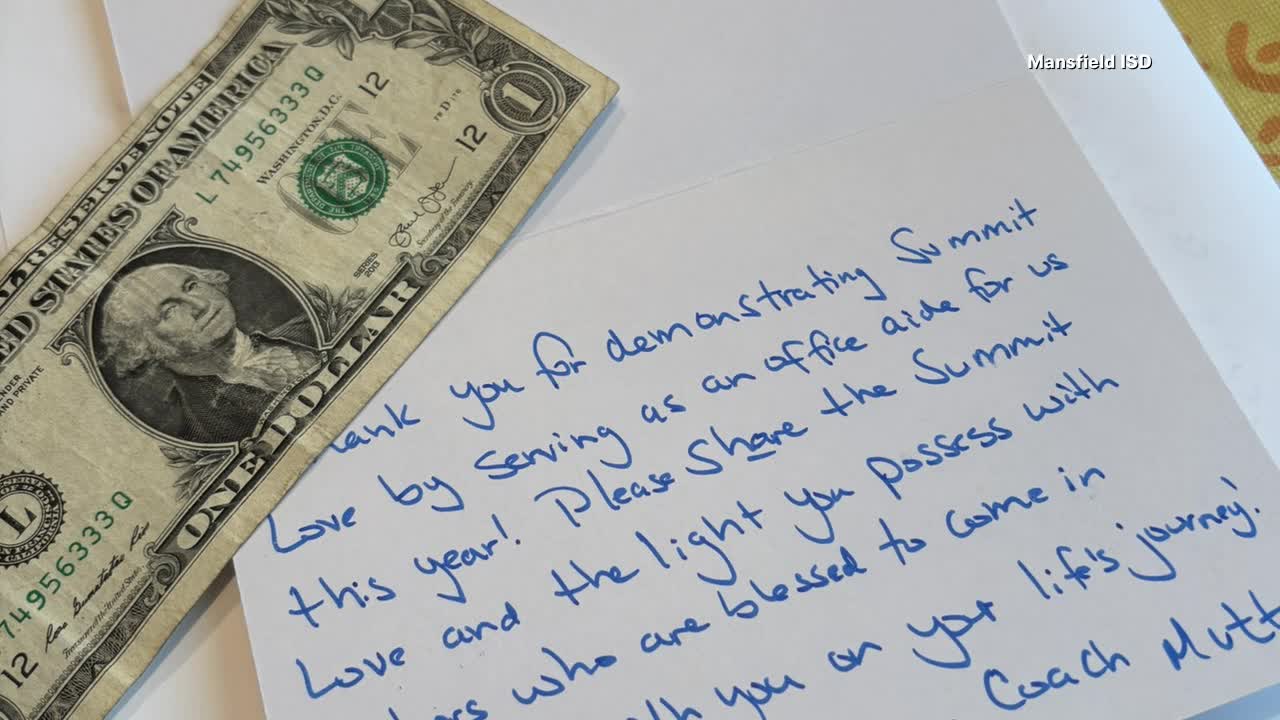 Mansfield ISD
RESERVE NOTE
STATES OF AMERICA
L 74956333 Q
12
WASHINGTON, D.C.
1
12
SERIES
2013
Secretary of the Treasury.
AND PRIVATE
L
ONE DOLLAR
74956333 Q
12
you for demonstrating Summit
Love by serving as an office aide for us
this year! Please Share the Summit
Love and the light you possess with
who are blessed to come in
you on your life's journey!
Coach Mutt